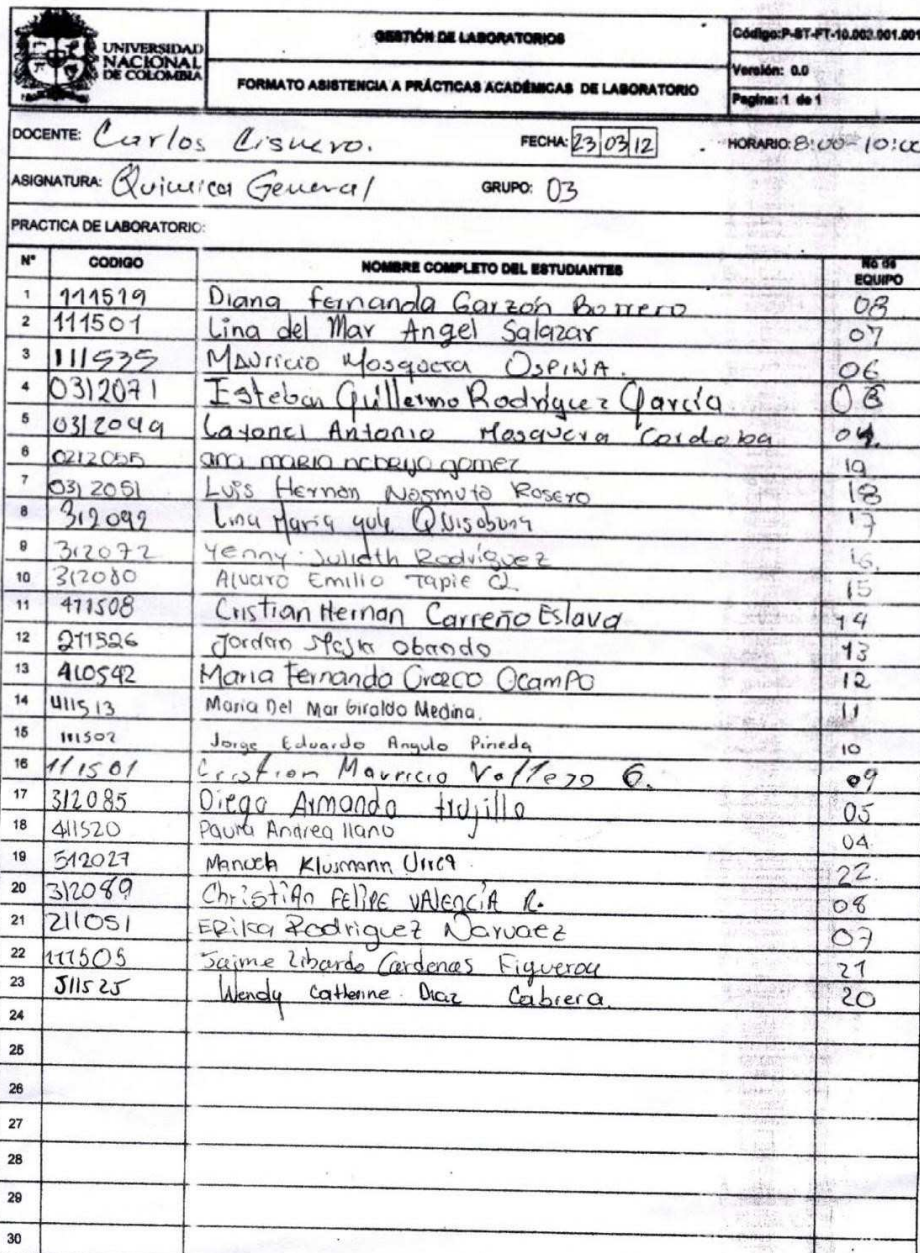 UNIVERSIDAD
NACIONAL
DE COLOMBIA
GESTIÓN DE LABORATORIOS
FORMATO ASISTENCIA A PRÁCTICAS ACADÉMICAS DE LABORATORIO
Código:P-ST-FT-10.002.001.001
Versión: 0.0
Pagina: 1 de 1
DOCENTE: Carlos Cisnero. FECHA: 23 03 12 HORARIO: 8:00-10:00
ASIGNATURA: Quimica General GRUPO: 03
PRACTICA DE LABORATORIO:
N° CODIGO NOMBRE COMPLETO DEL ESTUDIANTES No de EQUIPO
1 111519 Diana fernanda Garzón Borrero 08
2 111501 Lina del Mar Angel Salazar 07
3 111535 Mauricio Mosquera OSPINA. 06
4 0312071 Esteban Guillermo Rodríguez García 03
5 0312049 Antonio Mosquera Cordoba 04.
6 0212055 ana maria gomez 19
7 0312051 Luis Hernan Rosero 18
8 312092 Lina Maria 17
9 312072 Yenny Julieth Rodríguez 16
10 312080 Alvaro Emilio Tapie Q. 15
11 411508 Cristian Hernan Carreño Eslava 14
12 211526 Jordan obando 13
13 410542 Maria Fernanda Orozco OcamPO 12
14 411513 Maria Del Mar Giraldo Medina. 11
15 111502 Jorge Eduardo Angulo Pineda 10
16 111561 Cristian Mauricio Vallejo G. 09
17 312085 Diego Armando trujillo 05
18 411520 Paula Andrea llano 04
19 512027 Manuela Klusmann 22
20 312089 Christian FELIPE VALENCIA R. 08
21 211051 ERika Rodriguez Narvaez 07
22 111505 Jaime Libardo Cardenas Figueroa 21
23 511525 Wendy Catherine Diaz Cabrera. 20
24
25
26
27
28
29
30